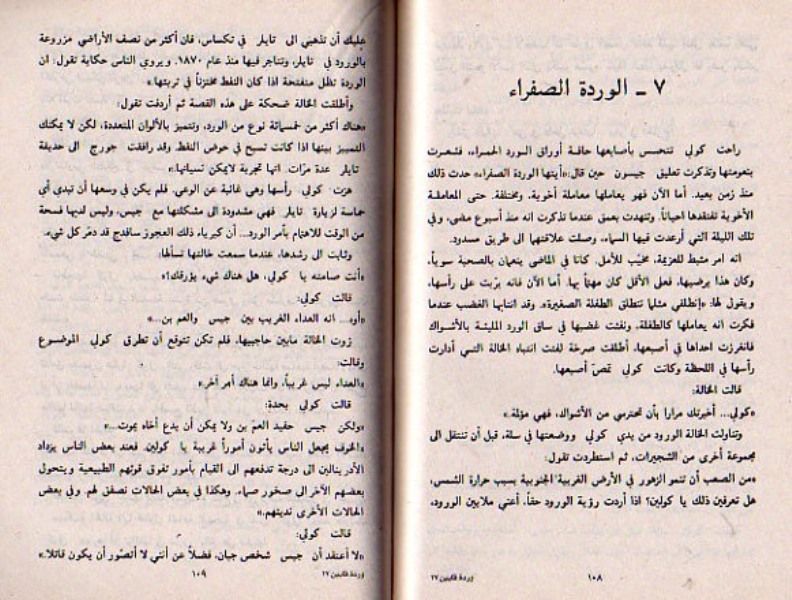 ٧ ـ الوردة الصفراء
راحت كولي تتحسس بأصابعها حافة أوراق الورد الحمراء، فشعرت
بنعومتها وتذكرت تعليق جيسون حين قال: «أيتها الوردة الصفراء» حدث ذلك
منذ زمن بعيد. أما الآن فهو يعاملها معاملة أخوية، ومختلفة. حتى المعاملة
الأخوية تفتقدها احياناً. وتنهدت بعمق عندما تذكرت انه منذ أسبوع مضى، وفي
تلك الليلة التي أرعدت فيها السماء، وصلت علاقتهما الى طريق مسدود.
انه امر مثبط للعزيمة، مخيّب للأمل. كانا في الماضي ينعمان بالصحبة سوياً،
وكان هذا يرضيها، فعلى الأقل كان مهتماً بها. أما الآن فانه يربّت على رأسها،
ويقول لها: «إنطلقي مثلما تنطلق الطفلة الصغيرة». وقد انتابها الغضب عندما
فكرت انه يعاملها كالطفلة. ونفثت غضبها في ساق الورد المليئة بالأشواك
فانغرزت احداها في أصبعها. أطلقت صرخة لفتت انتباه الخالة التي أدارت
رأسها في اللحظة وكانت كولي تمصّ أصبعها.
قالت الخالة:
«كولي... أخبرتك مرارا بأن تحترسي من الأشواك، فهي مؤلمة.»
وتناولت الخالة الورود من يدي كولي ووضعتها في سلة، قبل أن تنتقل الى
مجموعة أخرى من الشجيرات، ثم استطردت تقول:
«من الصعب أن تنمو الزهور في الأرض الغربية الجنوبية بسبب حرارة الشمس،
هل تعرفين ذلك يا كولين؟ اذا أردت رؤية الورود حقاً، أعني ملايين الورود،
١٠٨
وردة قايين ٢٧
عليك أن تذهبي الى تايلر في تكساس، فان أكثر من نصف الأراضي مزروعة
بالورود في تايلر، وتتاجر فيها منذ عام ١٨٧٠. ويروي الناس حكاية تقول: ان
الوردة تظل منفتحة اذا كان النفط مختزناً في تربتها.»
وأطلقت الخالة ضحكة على هذه القصة ثم أردفت تقول:
«هناك أكثر من خمسمائة نوع من الورد، وتتميز بالألوان المتعددة، لكن لا يمكنك
التمييز بينها اذا كانت تسبح في حوض النفط. وقد رافقت جورج الى حديقة
تايلر عدة مرّات. انها تجربة لايمكن نسيانها.»
هزت كولي رأسها وهي غائبة عن الوعي. فلم يكن في وسعها أن تبدي أي
حماسة لزيارة تايلر فهي مشدودة الى مشكلتها مع جيس، وليس لديها فسحة
من الوقت للاهتمام بأمر الورد... أن كبرياء ذلك العجوز سافدج قد دمّر كل شيء.
وثابت الى رشدها، عندما سمعت خالتها تسألها:
«أنت صامته يا كولي، هل هناك شيء يؤرقك؟»
قالت كولي:
«أوه... انه العداء الغريب بين جيس والعم بن...»
زوت الخالة مابين حاجبيها، فلم تكن تتوقع أن تطرق كولي الموضوع
وقالت:
«العداء ليس غريباً، وانما هناك أمر آخر.»
قالت كولي بحدة:
«ولكن جيس حفيد العمّ بن ولا يمكن أن يدع أخاه يموت...»
«الخوف يجعل الناس يأتون أموراً غريبة يا كولين. فعند بعض الناس يزداد
الأدرينالين الى درجة تدفعهم الى القيام بأمور تفوق قوتهم الطبيعية ويتحول
بعضهم الآخر الى صخور صماء. وهكذا في بعض الحالات نصفق لهم وفي بعض
الحالات الأخرى ندينهم.»
قالت كولي:
«لا أعتقد أن جيس شخص جبان، فضلاً عن أنني لا أتصوّر أن يكون قاتلا.»
١٠٩
وردة قايين ٢٧